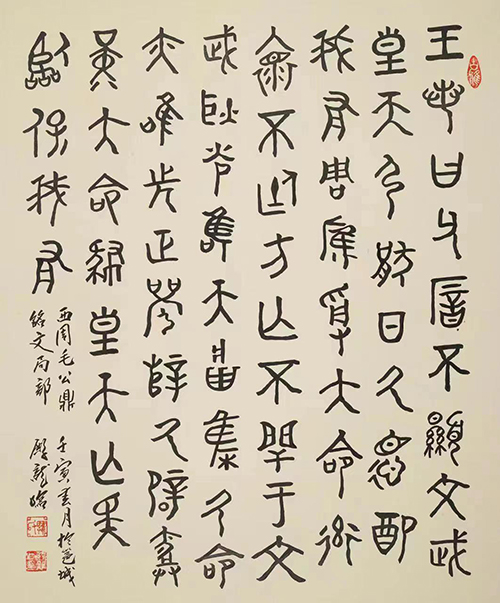 王若曰父厝不顯文武
皇天弘猒厥德配
我有周膺受大命率
懷不廷方亡不閈于文
武耿光唯天將集厥命
亦唯先正襄辥厥辟
堇大命肆皇天亡斁
臨保我有
西周毛公鼎
銘文局部
壬寅春月於邕城
龍